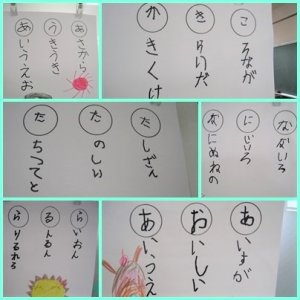 あさから
うきうき
あいうえお
ころなが
きらいだ
かきくけ
たしざん
たのしい
たちつてと
なないろ
にじいろ
なにぬねの
らいおん
るんるん
らりるれろ
あいすが
おいしい
あいうえ